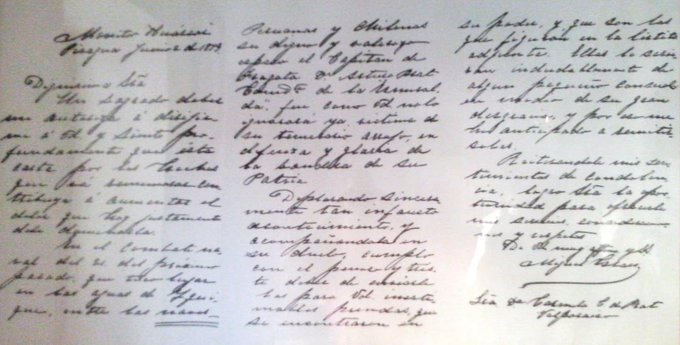 Monitor Huáscar
Pisagua Junio 2 de 1879
Dignísima Sra
Un sagrado deber
me autoriza á dirigir
me á Vd y siento pro-
fundamente que esta
carta por las luchas
que va á rememorar con
tribuya á aumentar el
dolor que hoy justamente
debe
En el combate na-
val del 21 del próximo
pasado, que tuvo lugar
en las aguas de Iqui-
que, entre las naves
Peruanas y Chilenas
su digno y valeroso
esposo el Capitan de
Fragata D. Arturo Prat
Comdte de la "Esmeral-
da", fue como Vd no lo
ignorará ya, victima de
su temerario arrojo, en
defensa y gloria de
la bandera de su
Patria
Deplorando sincera
mente tan infausto
acontecimiento y
acompañandola en
su duelo, cumplo
con el penoso y tris-
te deber de enviarle
las para Vd. inesti-
mables prendas, que
se encontraron en
su poder, y que son las
que figuran en la lista
adjunta. Ellas le servi-
ran indudablemente de
algun pequeño consuelo
en medio de su gran
desgracia y por eso me
he anticipado a remitir
selas.
Reiterandole mis sen-
timientos de condolen
cia, logro Sra la opor
tunidad para ofrecerle
mis servicios, considera-
ciones y respeto
Miguel Grau
Sra Da Carmela C. de Prat
Valparaiso